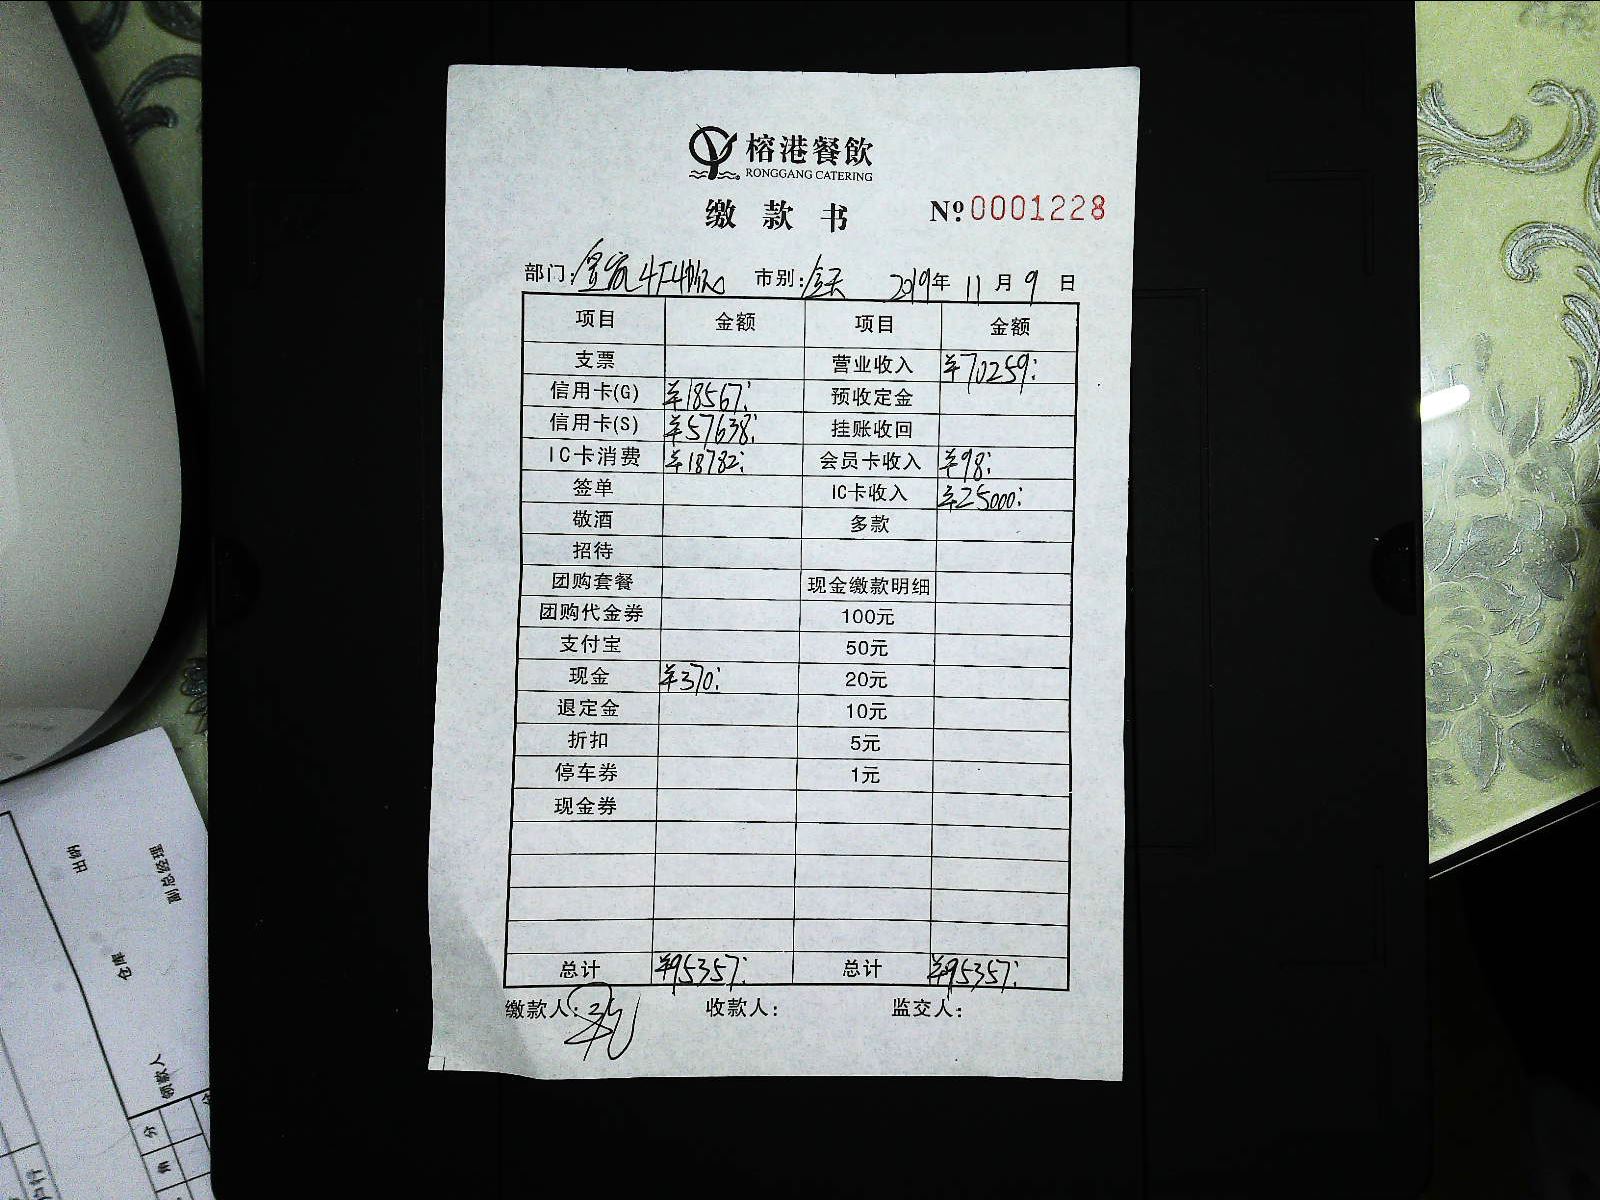 榕港餐飲
RONGGANG CATERING
缴款书 №0001228
部门: 市别:全天 2019年 11月 9日
项目 金额 项目 金额
支票 营业收入 ¥70259:
信用卡(G) ¥18567: 预收定金
信用卡(S) ¥57638: 挂账收回
IC卡消费 ¥18782: 会员卡收入 ¥98:
签单 IC卡收入 ¥25000:
敬酒 多款
招待
团购套餐 现金缴款明细
团购代金券 100元
支付宝 50元
现金 ¥370: 20元
退定金 10元
折扣 5元
停车券 1元
现金券
总计 ¥95357: 总计 ¥95357:
缴款人: 收款人: 监交人:
出纳
副总经理
仓库
领款人
分
角